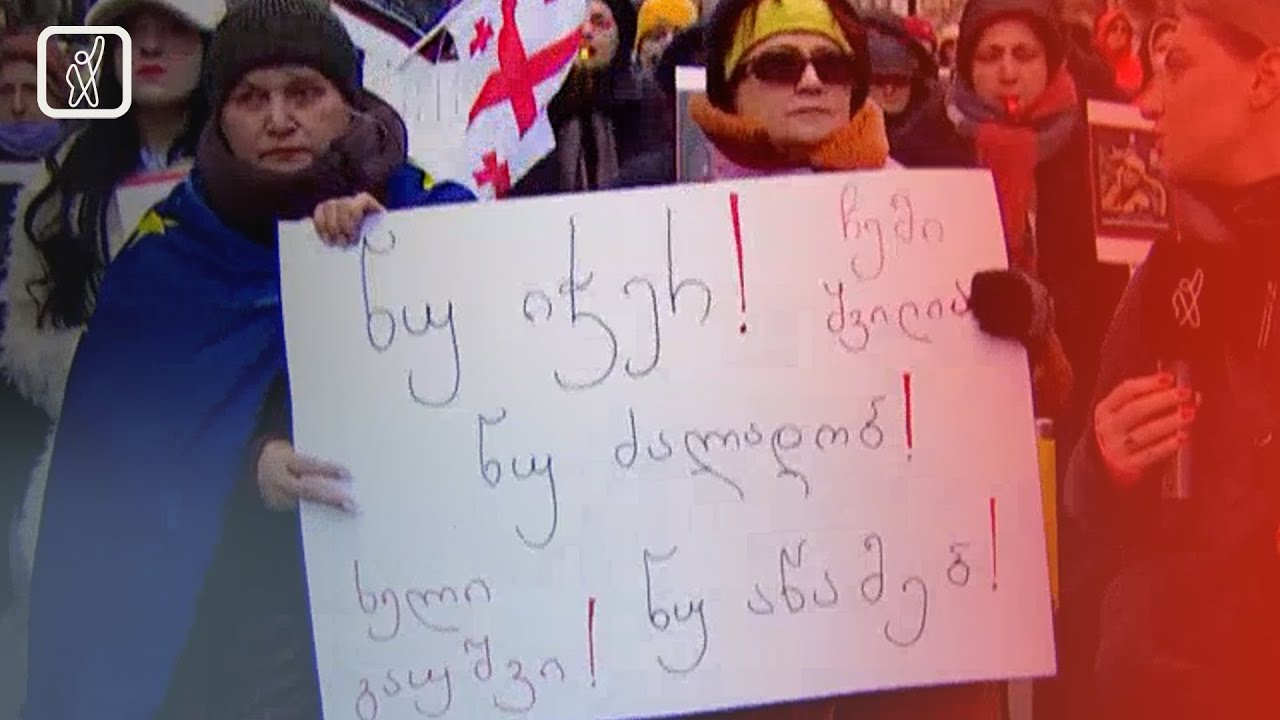 ნუ იჭერ! ჩემი
შვილია
ნუ ძალადობ!
ხელი
გაუშვი!
ნუ აწამებ!